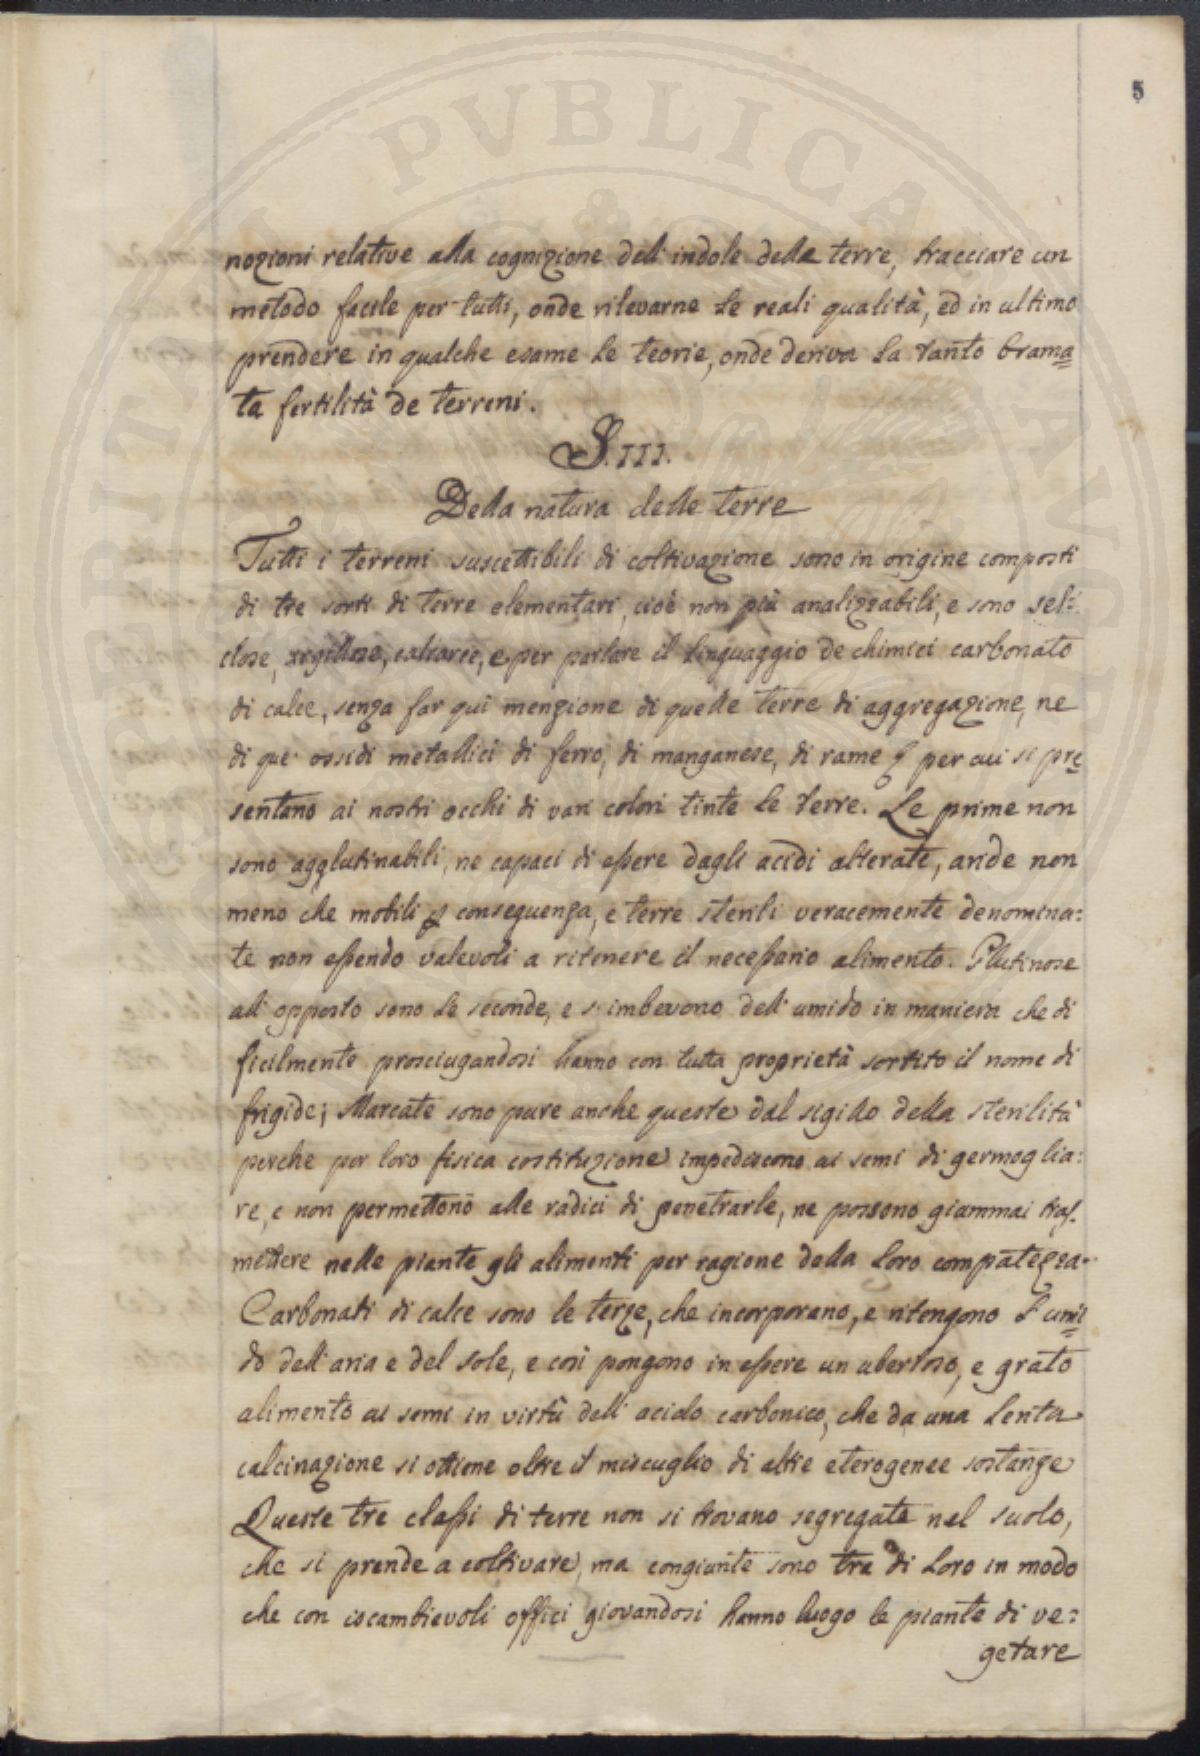 5
nozioni relative alla cognizione dell'indole delle terre, tracciare un
metodo facile per tutti, onde rilevarne le reali qualità, ed in ultimo
prendere in qualche esame le teorie, onde deriva la tanto brama=
ta fertilità de terreni.
§. III.
Della natura delle terre
Tutti i terreni suscettibili di coltivazione sono in origine composti
di tre sorti di terre elementari, cioè non più analizzabili, e sono sel=
ciose, argillose, calcaree, e per parlare il linguaggio de chimici carbonato
di calce, senza far quì menzione di quelle terre di aggregazione, ne
di que' ossidi metallici di ferro, di manganese, di rame per cui si pre=
sentano ai nostri occhi di vari colori tinte le terre. Le prime non
sono agglutinabili, ne capaci di essere dagli acidi alterate, ande non
meno che mobili conseguenza, e terre sterili veracemente denomina:
te non essendo valevoli a ritenere il necessario alimento. Glutinose
all'opposto sono le seconde, e s'imbevono dell'umido in maniera che di
ficilmente prosciugandosi hanno con tutta proprietà sortito il nome di
frigide; Marcate sono pure anche queste dal sigillo della sterilità
perche per loro fisica costituzione impediscono ai semi di germoglia:
re, e non permettono alle radici di penetrarle, ne possono giammai tras.
mettere nelle piante gli alimenti per ragione della loro compatezza.
Carbonati di calce sono le terze, che incorporano, e ritengono l'umi=
do dell'aria e del sole, e così pongono in essere un ubertoso, e grato
alimento ai semi in virtù dell'acido carbonico, che da una lenta
calcinazione si ottiene oltre il miscuglio di altre eterogenee sostanze
Queste tre classi di terre non si trovano segregate nel suolo,
che si prende a coltivare, ma congiunte sono tra di loro in modo
che con iscambievoli offici giovandosi hanno luogo le piante di ve:
getare